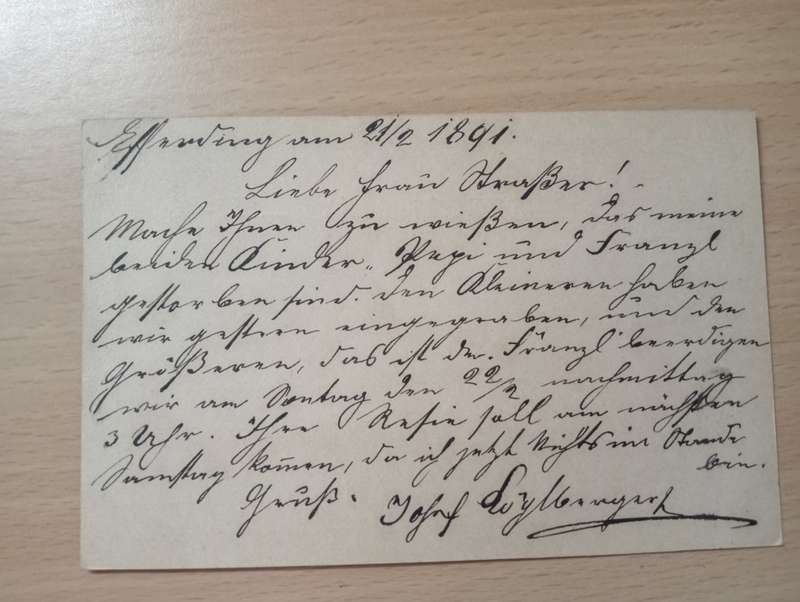 Efferding am 21/2 1891.
Liebe Frau Straßer!
Mache Ihnen zu wießen, das meine
beiden Kinder „Pepi und Franzl
gestorben sind. Den Kleineren haben
wir gestern eingegraben, und den
Größeren, das ist der „Franzl" beerdigen
wir am Sontag den 22/2 nachmittag
3 Uhr. Ihre Resie soll am nächsten
Samstag komen, da ich jetzt Nichts im Stande
bin.
Gruß. Josef